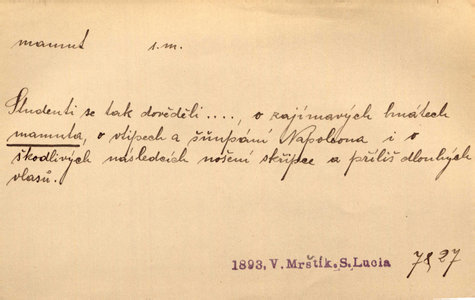 mamut s. m.
Studenti se tak dověděli ...., o zajímavých hnátech
mamuta, o vtipech a šňupání Napoleona i o
škodlivých následcích nošení skřipce a příliš dlouhých
vlasů.
1893, V. Mrštík, S. Lucia 78, 27